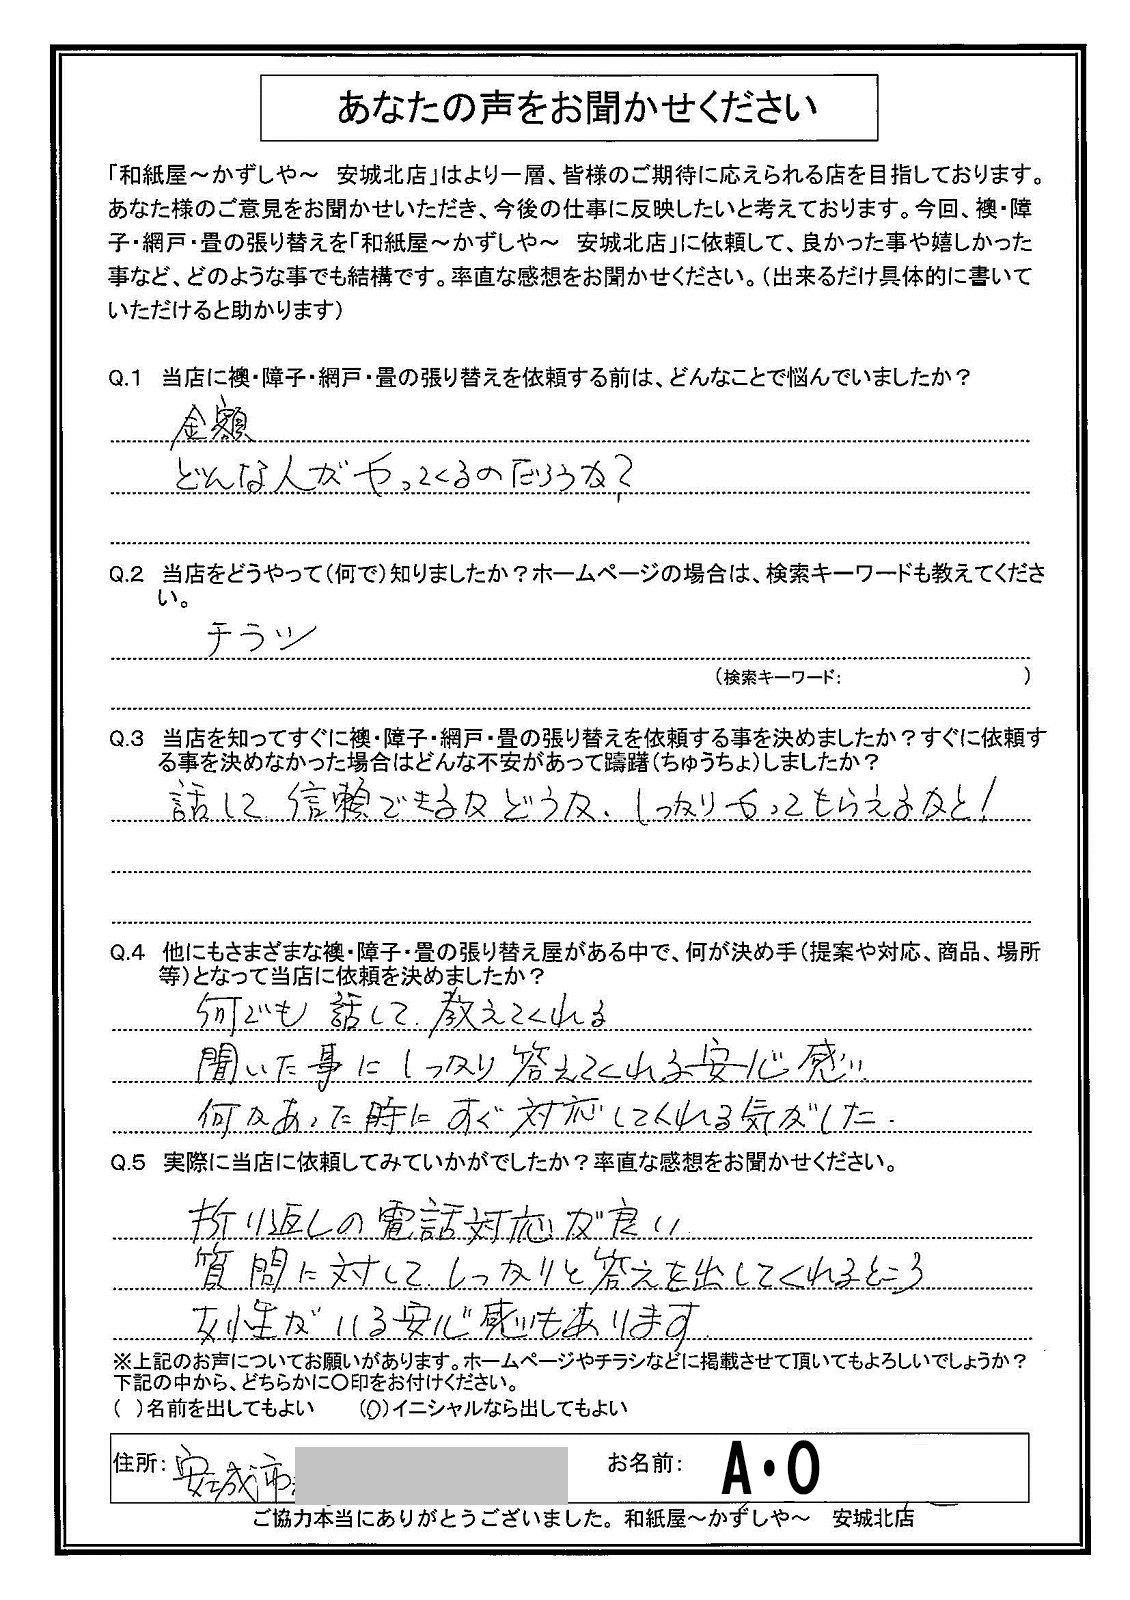 あなたの声をお聞かせください
「和紙屋～かずしや～　安城北店」はより一層、皆様のご期待に応えられる店を目指しております。
あなた様のご意見をお聞かせいただき、今後の仕事に反映したいと考えております。今回、襖・障
子・網戸・畳の張り替えを「和紙屋～かずしや～　安城北店」に依頼して、良かった事や嬉しかった
事など、どのような事でも結構です。率直な感想をお聞かせください。（出来るだけ具体的に書いて
いただけると助かります）
Q.1　当店に襖・障子・網戸・畳の張り替えを依頼する前は、どんなことで悩んでいましたか？
金額
どんな人がやってくるのだろうか？
Q.2　当店をどうやって（何で）知りましたか？ホームページの場合は、検索キーワードも教えてくださ
い。
チラシ
（検索キーワード:　　　　　　　　　　）
Q.3　当店を知ってすぐに襖・障子・網戸・畳の張り替えを依頼する事を決めましたか？すぐに依頼す
る事を決めなかった場合はどんな不安があって躊躇（ちゅうちょ）しましたか？
話して、信頼できるかどうか、しっかりやってもらえるかと！
Q.4　他にもさまざまな襖・障子・畳の張り替え屋がある中で、何が決め手（提案や対応、商品、場所
等）となって当店に依頼を決めましたか？
何でも話して、教えてくれる
聞いた事にしっかり答えてくれる安心感い
何かあった時にすぐ対応してくれる気がした.
Q.5　実際に当店に依頼してみていかがでしたか？率直な感想をお聞かせください。
折り返しの電話対応が良い
質問に対して、しっかりと答えを出してくれるところ
女性がいる安心感もあります
※上記のお声についてお願いがあります。ホームページやチラシなどに掲載させて頂いてもよろしいでしょうか？
下記の中から、どちらかに〇印をお付けください。
（　）名前を出してもよい　　（〇）イニシャルなら出してもよい
住所：安城市　　お名前：　A・O
ご協力本当にありがとうございました。和紙屋～かずしや～　安城北店